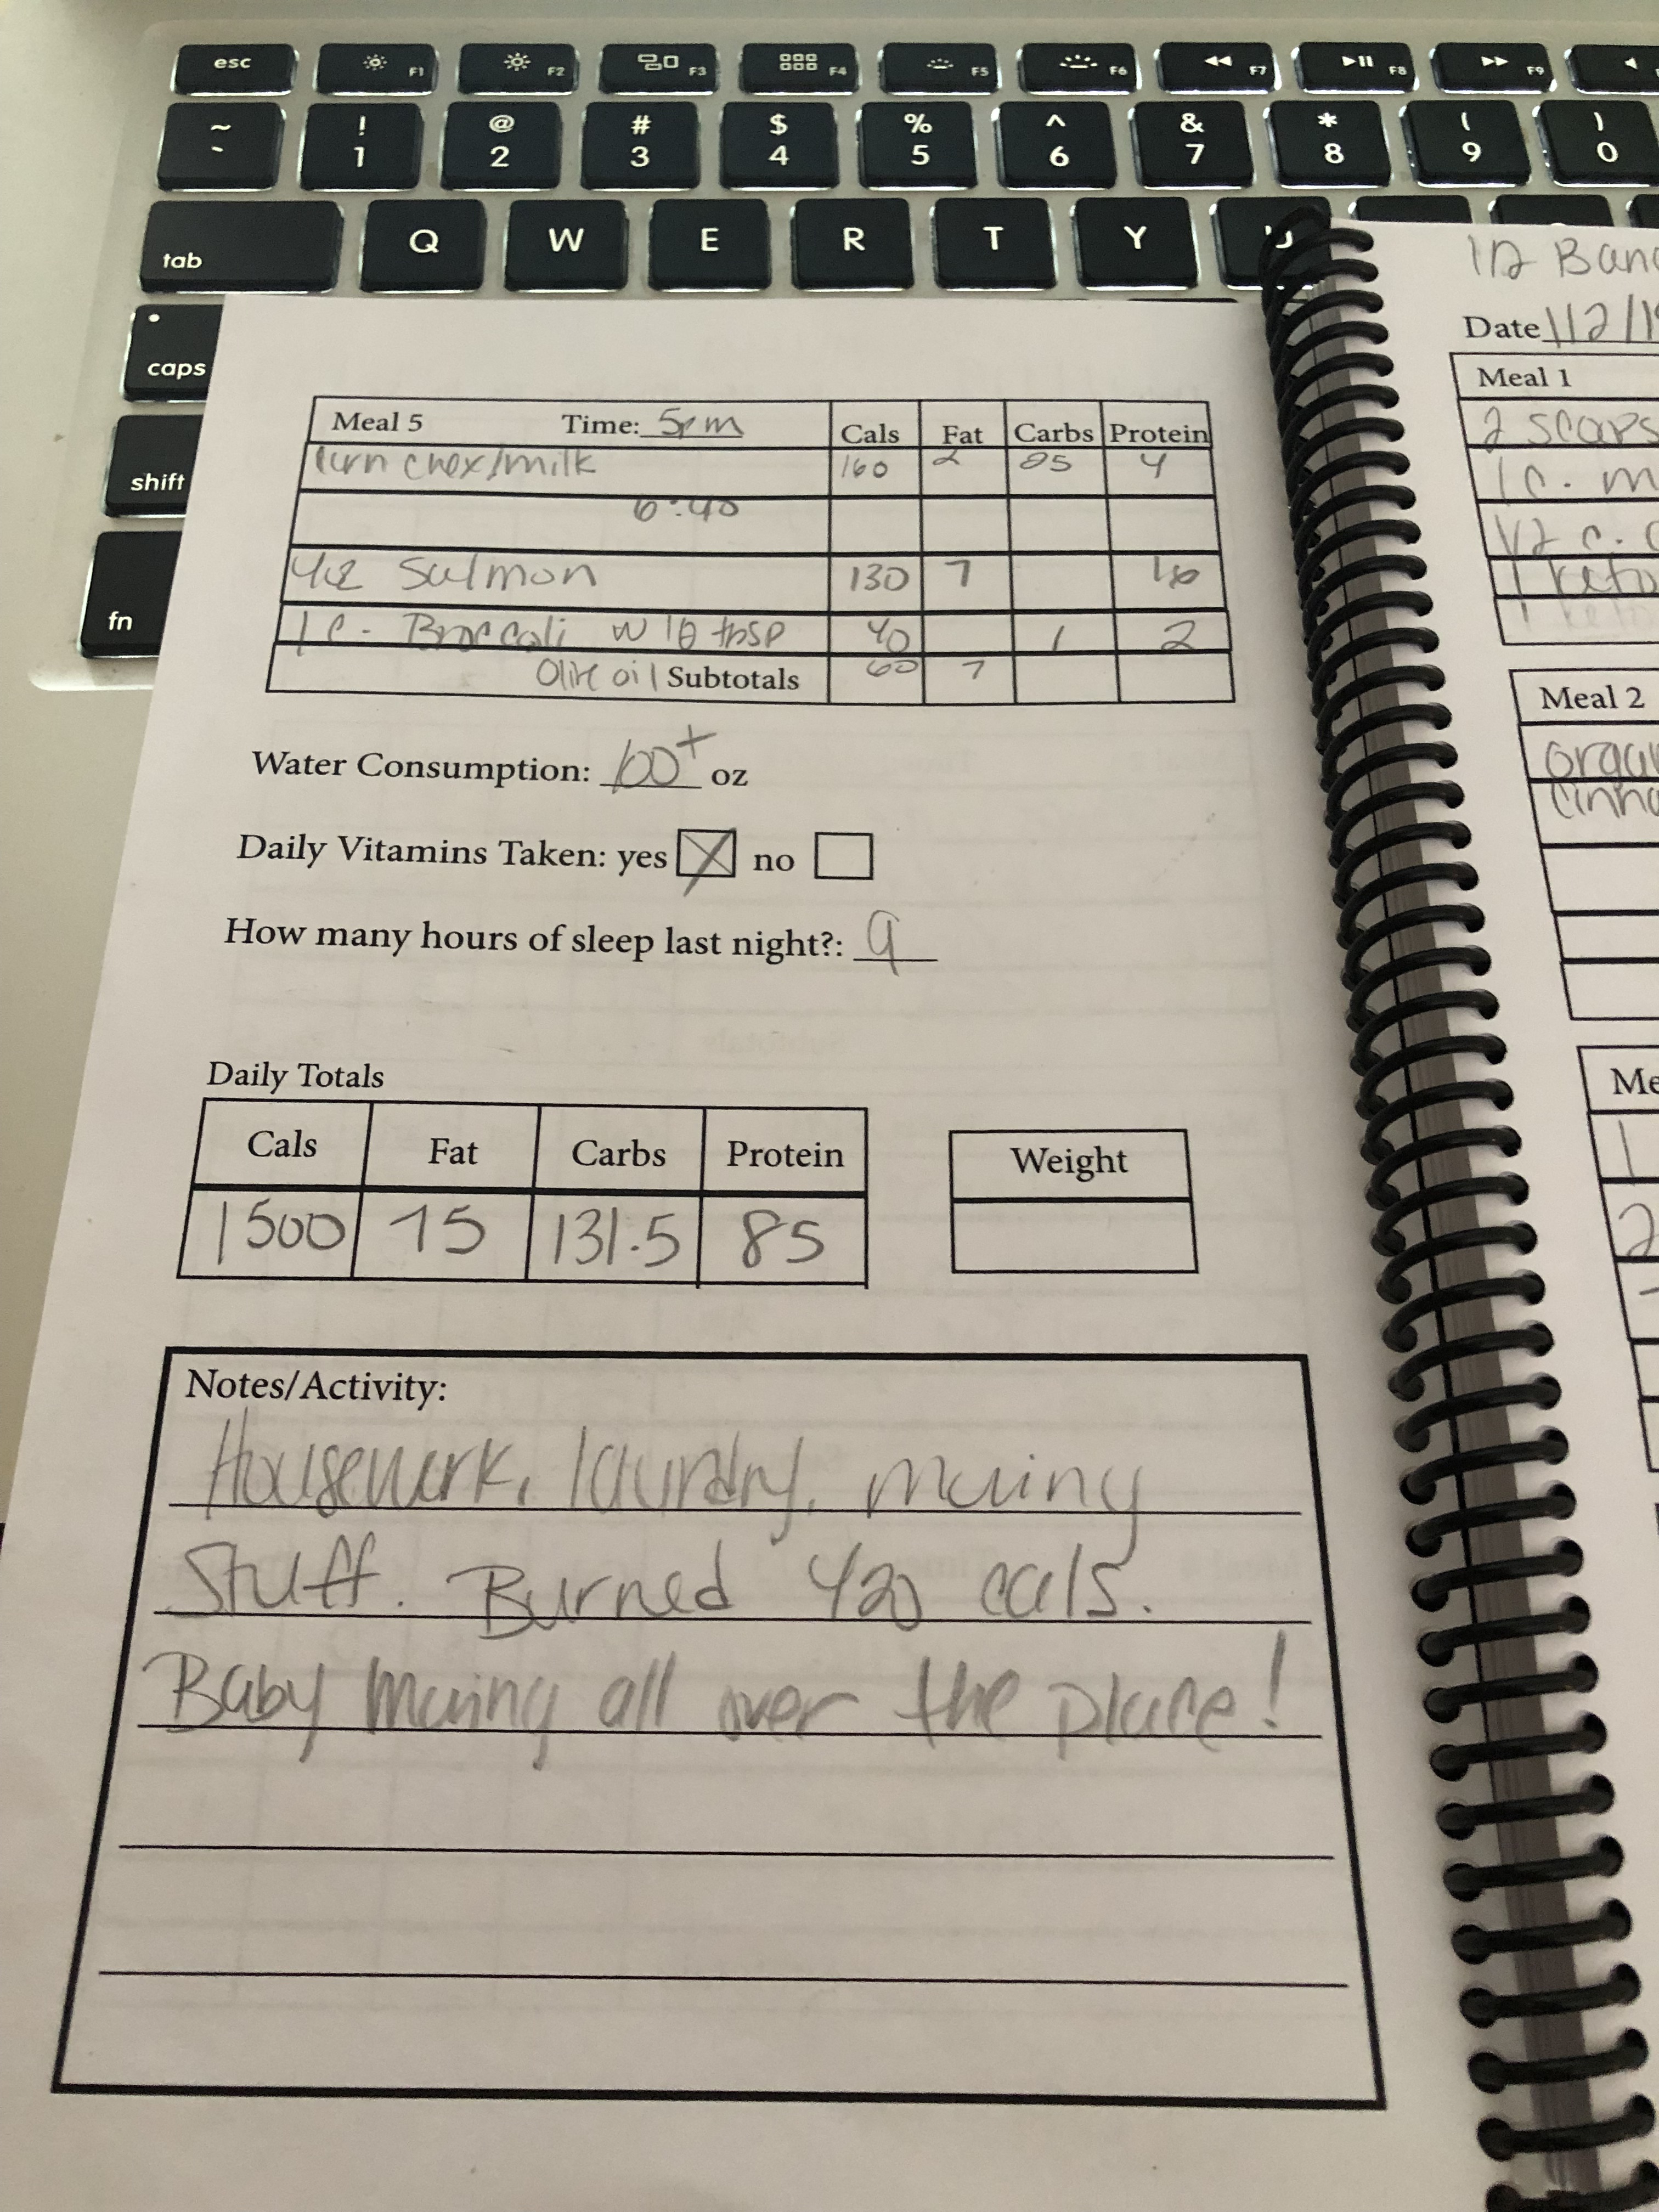 esc F1 F2 F3 F4 F5 F6 F7 F8 F9
~ ! @ # $ % ^ & * ( )
` 1 2 3 4 5 6 7 8 9 0
tab Q W E R T Y
caps
shift
fn
Meal 5 Time: 5pm Cals Fat Carbs Protein
Corn chex/milk 160 2 25 4
6:40
4oz Salmon 130 7 16
1 c. Broccoli w 1/2 tbsp 40 1 2
Olive oil Subtotals 60 7
Water Consumption: 100+ oz
Daily Vitamins Taken: yes no
How many hours of sleep last night?: 9
Daily Totals
Cals Fat Carbs Protein
1500 75 131.5 85
Weight
Notes/Activity:
Housework, laundry, moving
Stuff. Burned 420 cals.
Baby moving all over the place!
1/2
Date 1/2/1
Meal 1
2 scoops
1 c. m
1/2 c. c
1 keto
Meal 2
organ
cinna
Me
1
2